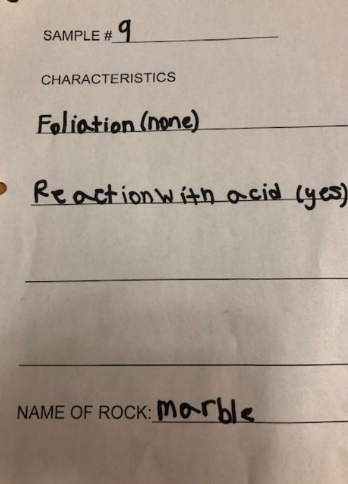 SAMPLE # 9
CHARACTERISTICS
Foliation (none)
Reaction with acid (yes)
NAME OF ROCK: marble